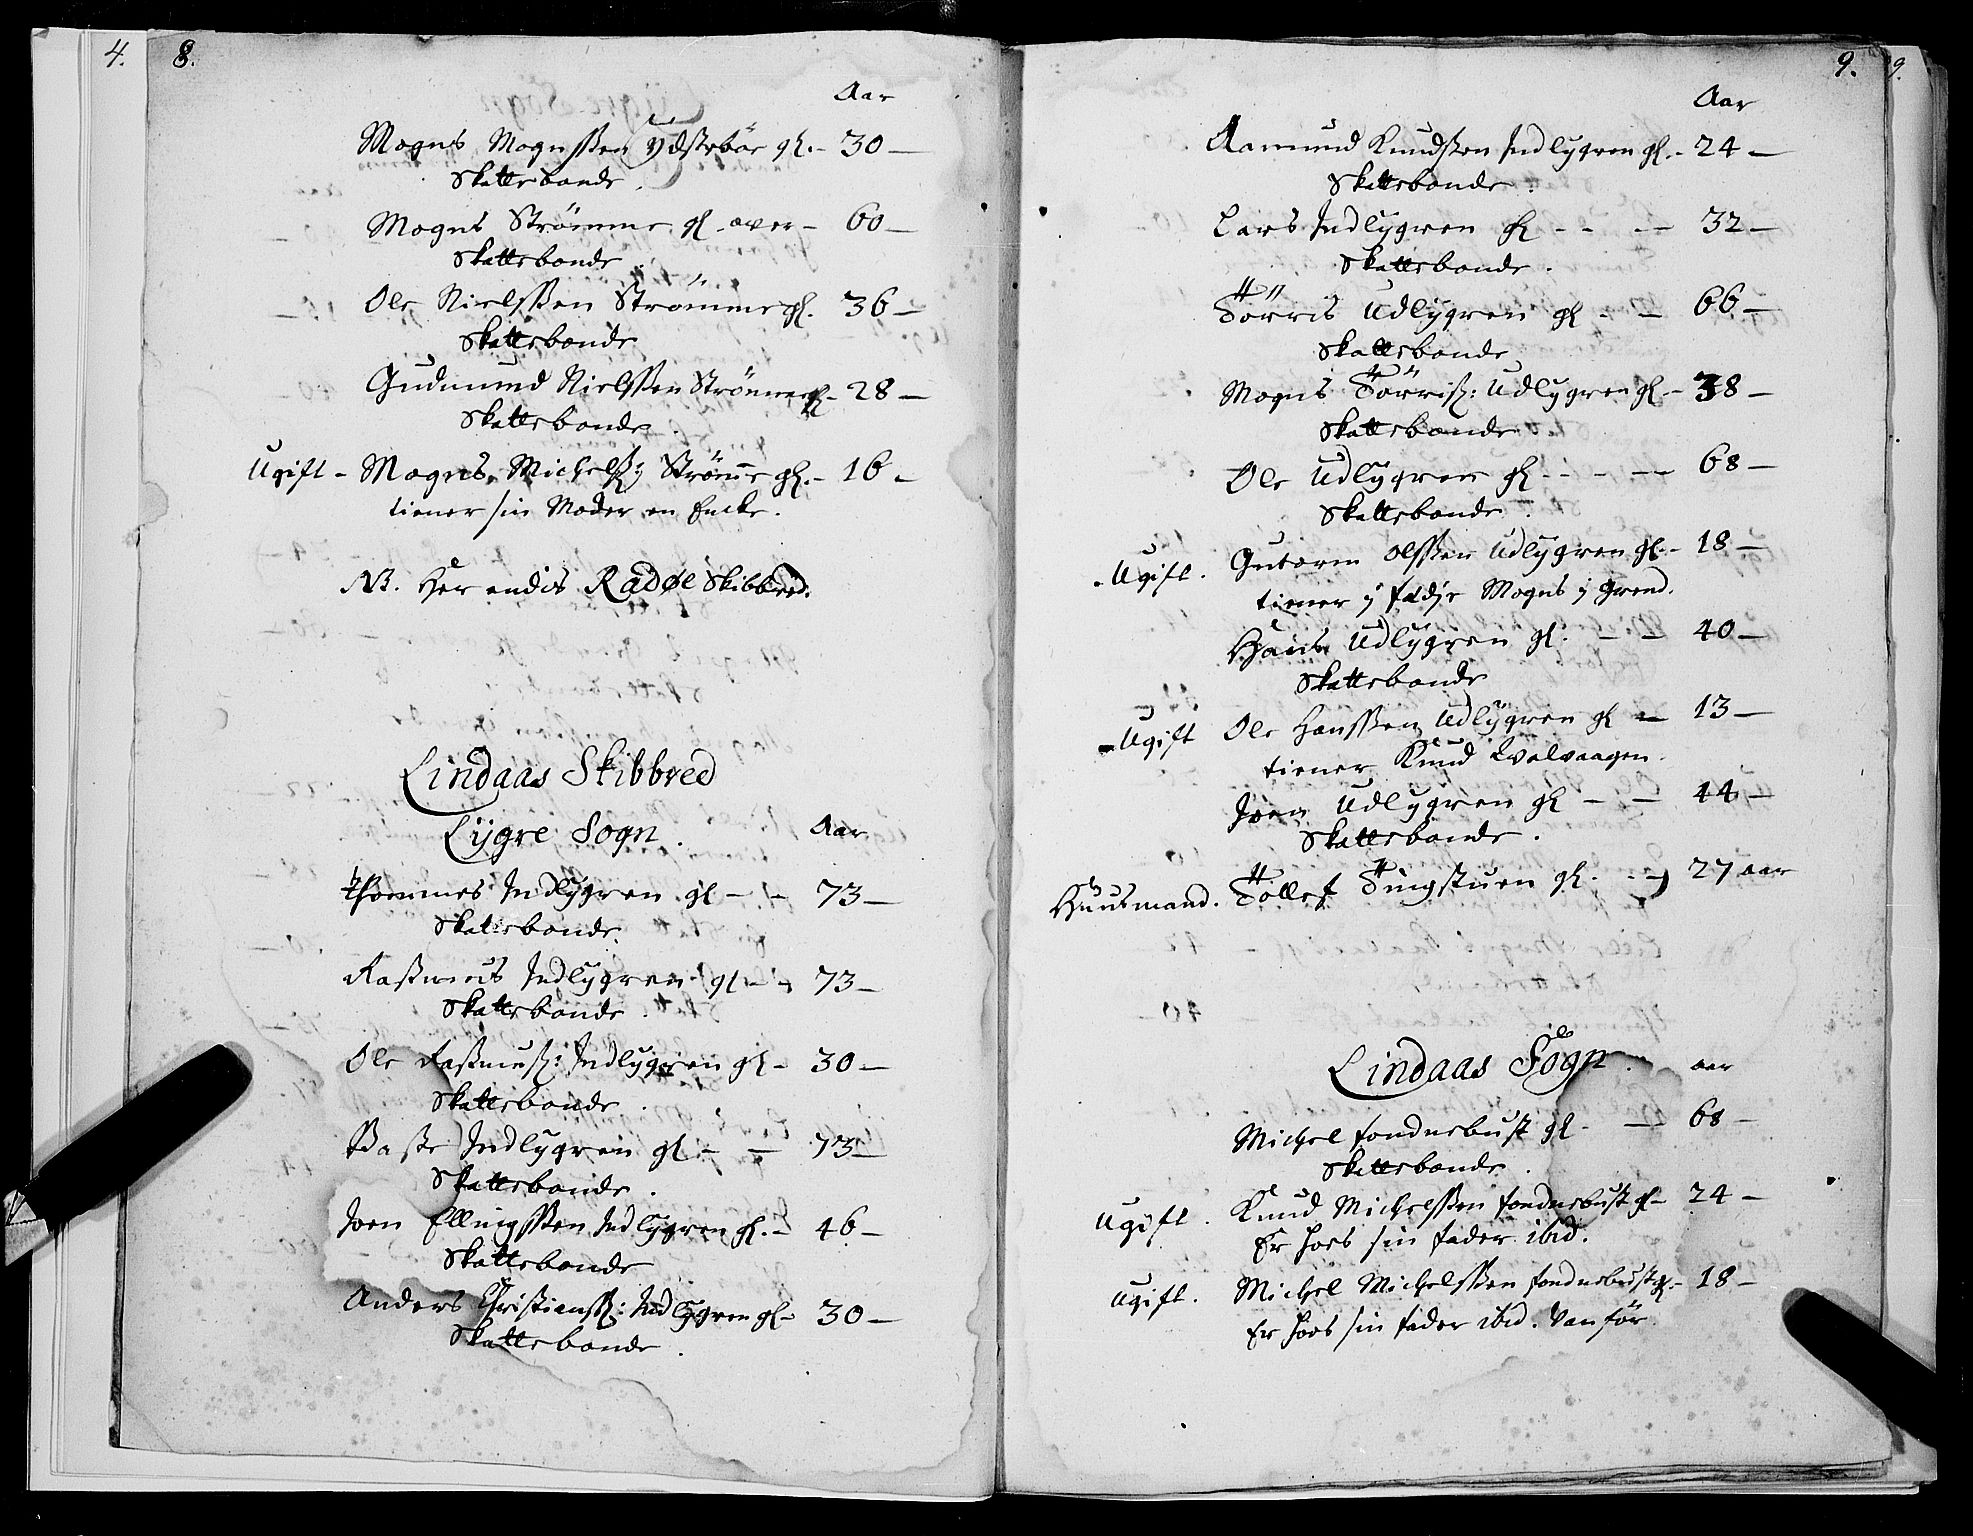 4. 8.
Aar
Mogns Mognssen Ydstebøe gl. - 30 -
Skattebonde.
Mogns Strömme gl. over - 60 -
Skattebonde.
Ole Nielssen Strömme gl. 36 -
Skattebonde
Gudmund Nielssen Strömme gl - 28 -
Skattebonde.
Ugift - Mogns Michelss: Strömme gl. - 16 -
tiener sin Moder en Encke.
NB. Her endis Radøe Skibbred.
Lindaas Skibbred
Lygre Sogn. Aar
Thommes Indlygren gl - - 73 -
Skattebonde.
Rasmus Indlygren gl - - 73 -
Skattebonde.
Ole Rasmuss: Indlygren gl - 30 -
Skattebonde.
Baste Indlygren gl - - 73 -
Skattebonde.
Joen Ellingssen Indlygren gl. - 46 -
Skattebonde
Anders Christianss: Indlygren gl - 30 -
Skattebonde.
9. 9.
Aar
Aamund Knudsen Indlygren gl. - 24 -
Skattebonde.
Lars Indlygren gl - - - - 32 -
Skattebonde.
Törris Udlygren gl - - 66 -
Skattebonde
Mogns Törriss: Udlygren gl - 38 -
Skattebonde.
Ole Udlygren gl - - - - 68 -
Skattebonde.
Ugift. Gutorm Olssen Udlygren gl - 18 -
tiener j Fædje Mogns j Grend.
Hans Udlygren gl. - - 40 -
Skattebonde
Ugift Ole Hanssen Udlygren gl - 13 -
tiener Knud Kvalvaagen.
Joen Udlygren gl - - 44 -
Skattebonde.
Huusmand. Töllef Tingstuen gl. - - 27 aar
Lindaas Sogn. aar
Michel Fondnebust gl - - 68 -
Skattebonde.
Ugift. Knud Michelssen Fondnebust gl - 24 -
Er hoes sin Fader ibid.
Ugift. Michel Michelssen Fondnebust gl. - 18 -
Er hoes sin Fader ibid. Vanför